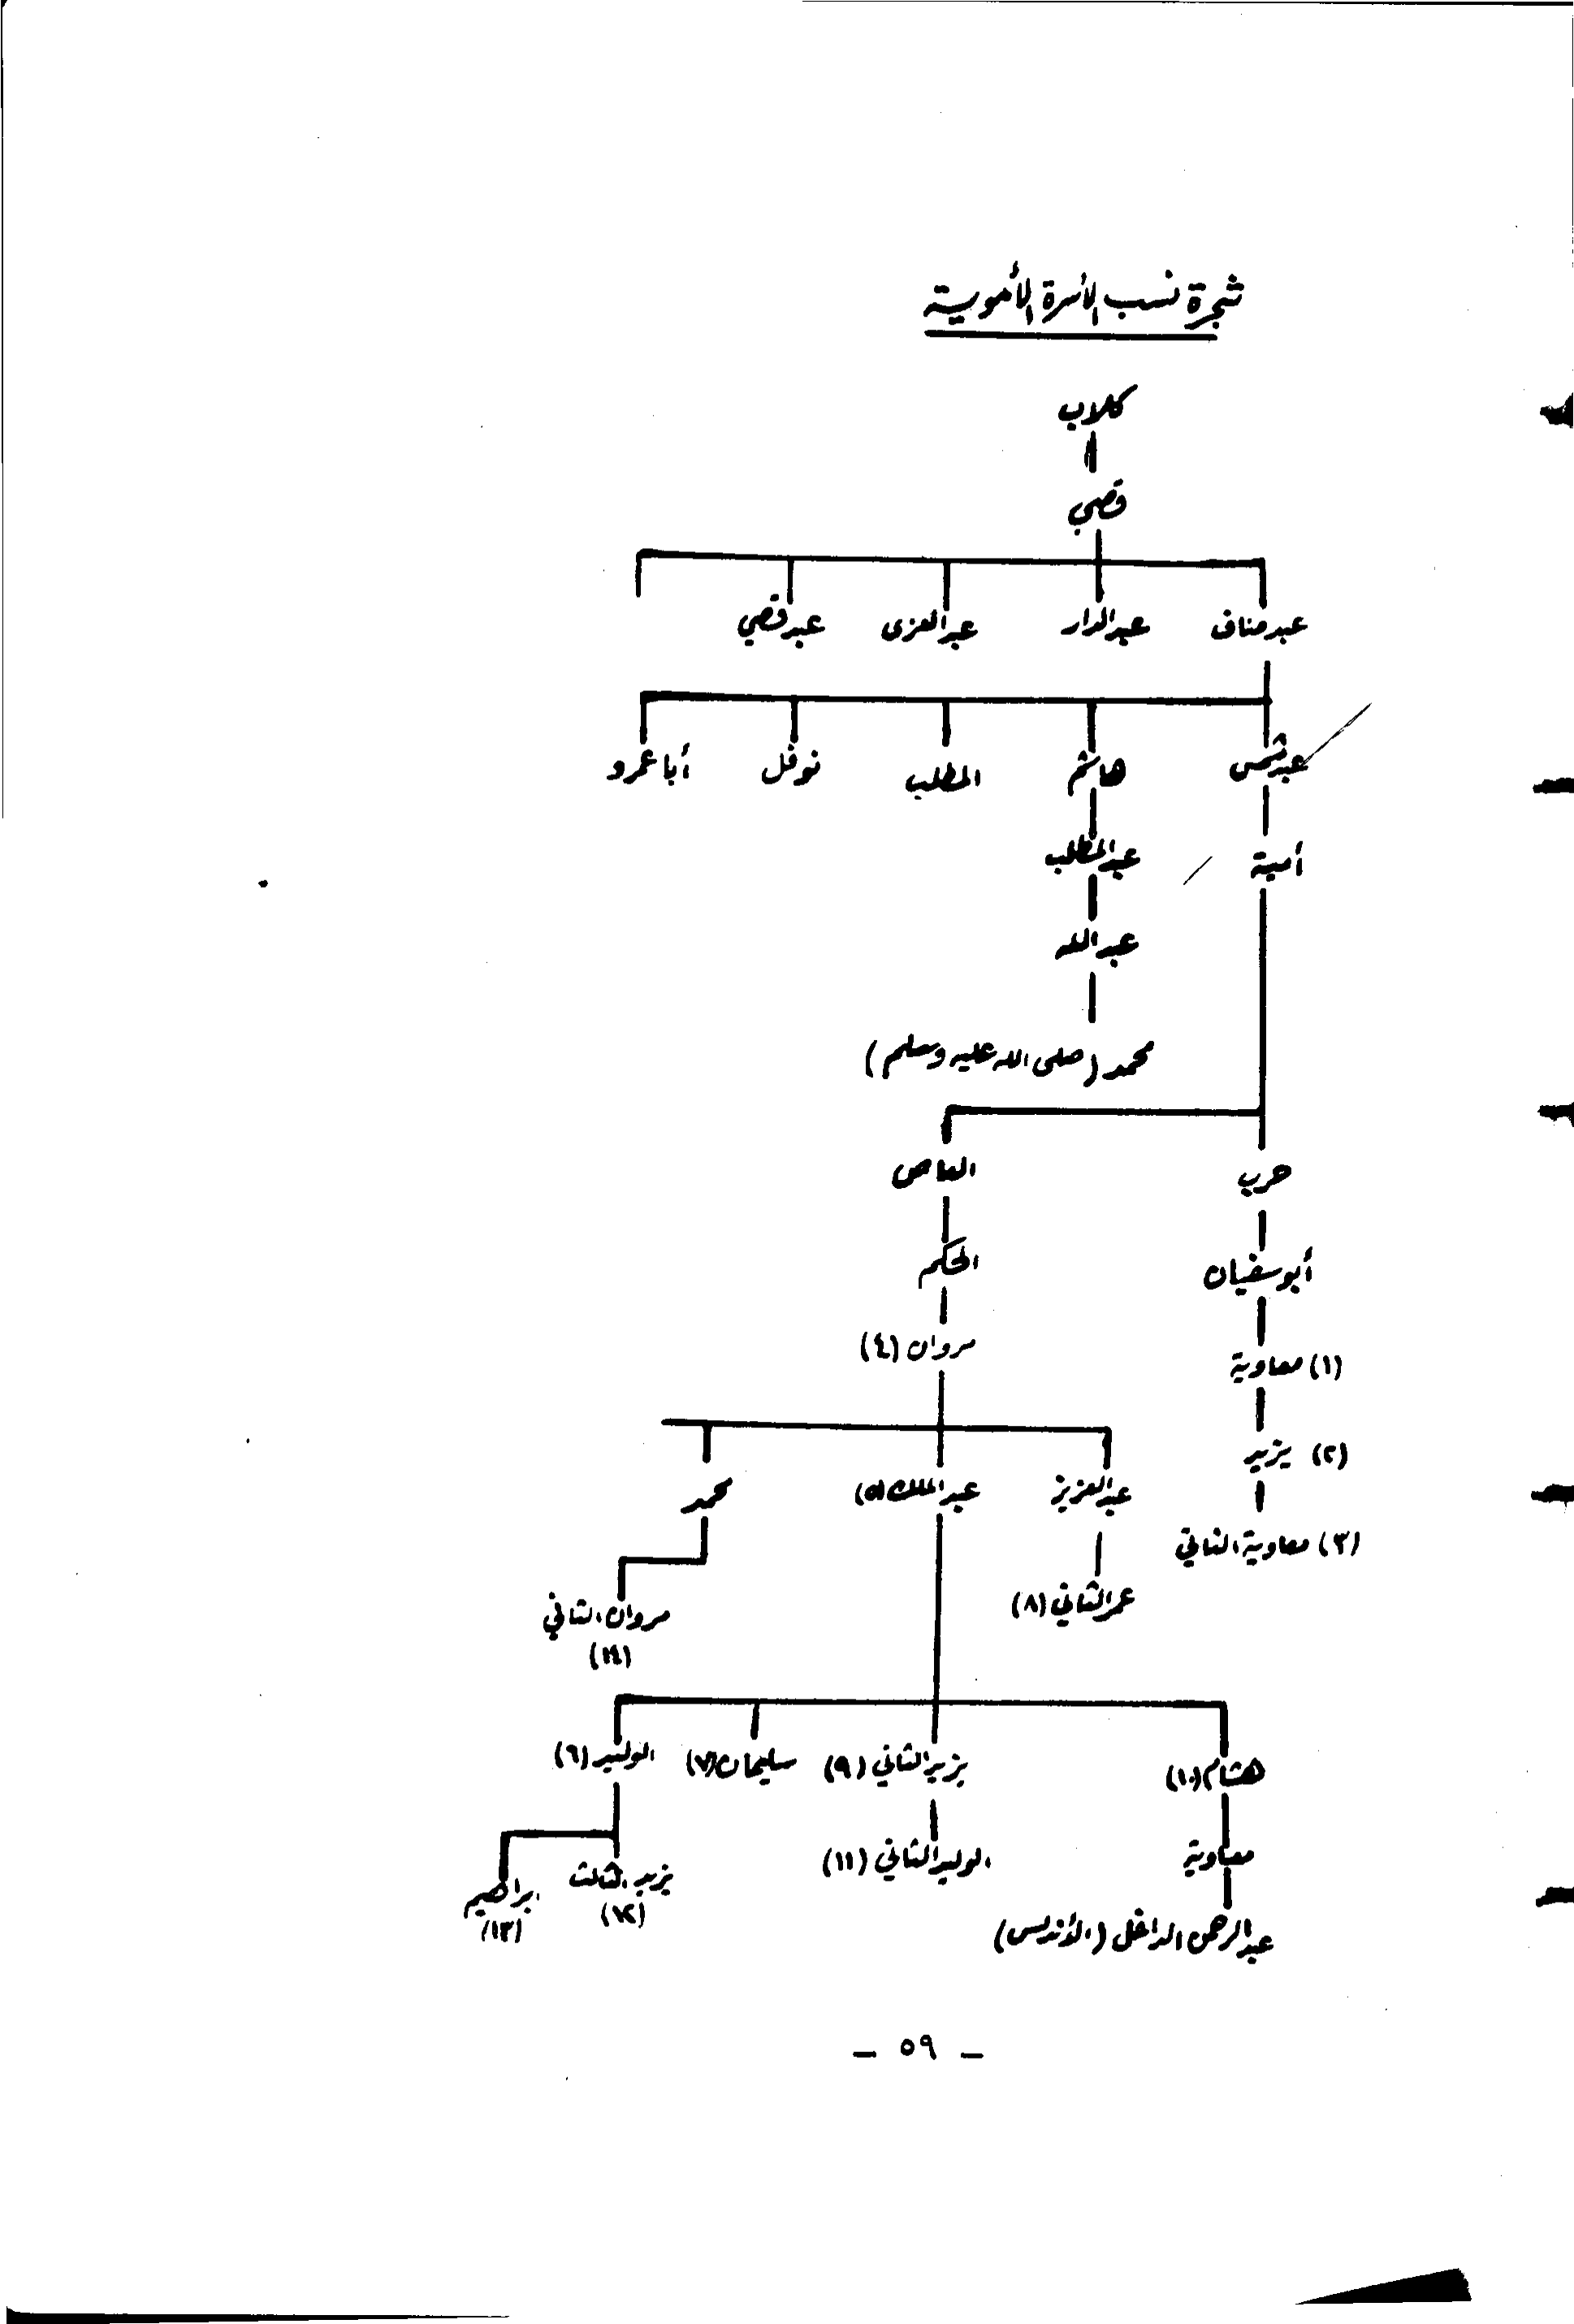 شجرة نسب الأسرة الأموية
كلاب
قصي
عبد مناف عبد الدار عبد العزى عبد قصي
عبد شمس هاشم المطلب نوفل أبا عمرو
أمية عبد المطلب
عبد الله
محمد (صلى الله عليه وسلم)
حرب العاص
أبو سفيان الحكم
(١) معاوية مروان (٤)
(٢) يزيد
عبد العزيز عبد الملك (٥) محمد
(٣) معاوية الثاني
عمر الثاني (٨) مروان الثاني
(١٤)
هشام (١٠) يزيد الثاني (٩) سليمان (٧) الوليد (٦)
معاوية الوليد الثاني (١١) يزيد الثالث ابراهيم
(١٢) (١٣)
عبد الرحمن الداخل (الأندلس)
- ٥٩ -